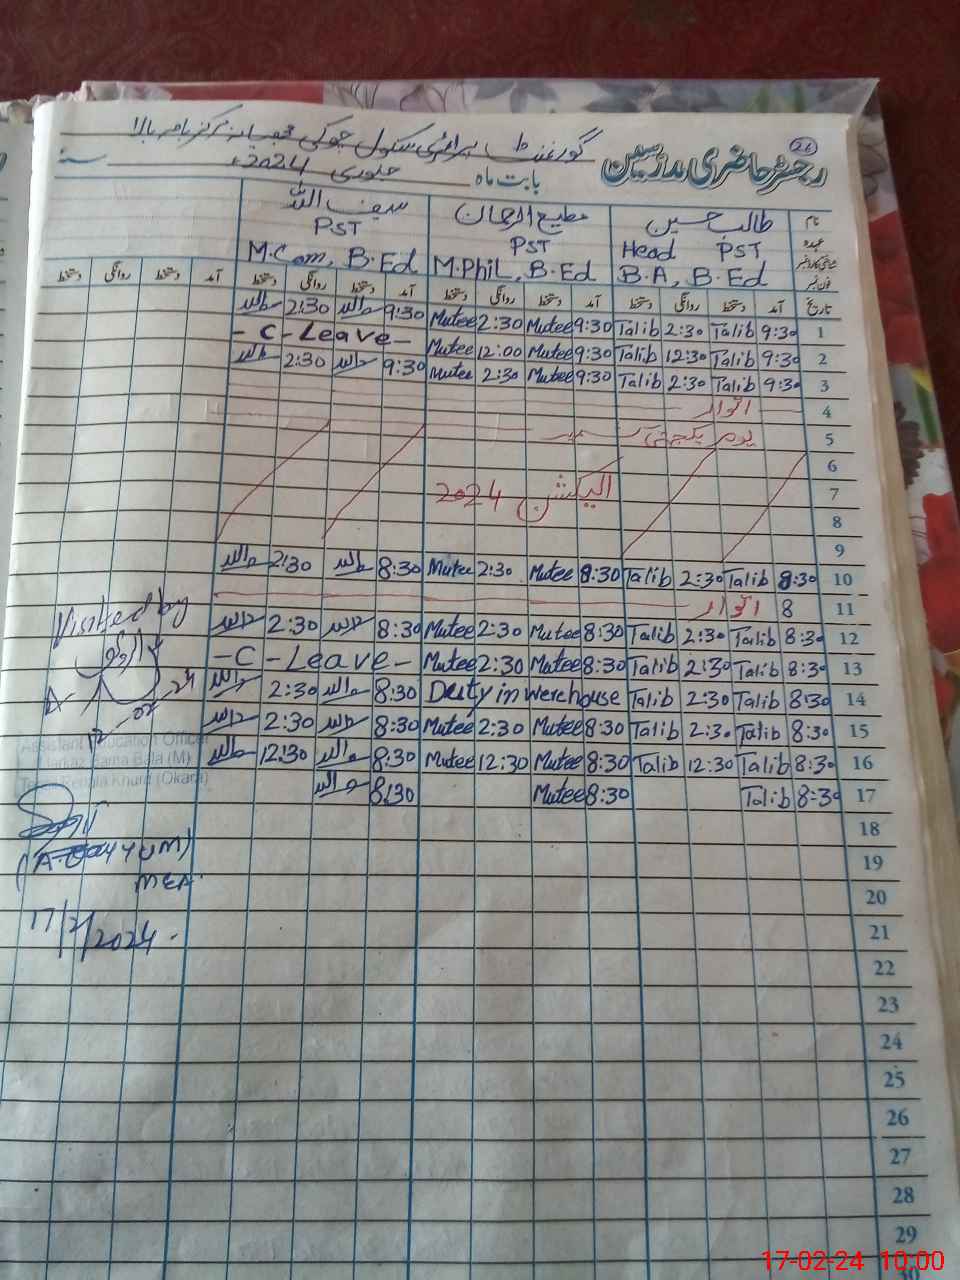 26
رجسٹر حاضری مدرسین
گورنمنٹ پرائمری سکول چوکی مرکز بامہ بالا
بابت ماہ جنوری 2024ء سنہ
نام طالب حسین مطیع الرحمان سیف اللہ
عہدہ Head PST PST PST
B.A, B.Ed M.Phil, B.Ed M.Com, B.Ed
تاریخ آمد دستخط روانگی دستخط آمد دستخط روانگی دستخط آمد دستخط روانگی دستخط آمد دستخط روانگی دستخط
1 9:30 Talib 2:30 Talib 9:30 Mutee 2:30 Mutee 9:30 2:30
2 9:30 Talib 12:30 Talib 9:30 Mutee 12:00 Mutee - C - Leave -
3 9:30 Talib 2:30 Talib 9:30 Mutee 2:30 Mutee 9:30 2:30
4 اتوار
5 یوم یکجہتی کشمیر
6
7 الیکشن 2024
8
9
10 8:30 Talib 2:30 Talib 8:30 Mutee 2:30 Mutee 8:30 2:30
11 8 اتوار
12 8:30 Talib 2:30 Talib 8:30 Mutee 2:30 Mutee 8:30 2:30
13 8:30 Talib 2:30 Talib 8:30 Mutee 2:30 Mutee - C - Leave -
14 8:30 Talib 2:30 Talib Duty in werehouse 8:30 2:30
15 8:30 Talib 2:30 Talib 8:30 Mutee 2:30 Mutee 8:30 2:30
16 8:30 Talib 12:30 Talib 8:30 Mutee 12:30 Mutee 8:30 12:30
17 8:30 Talib 8:30 Mutee 8:30
18
19
20
21
22
23
24
25
26
27
28
29
30
Visited by
17-02-24
Assistant Education Officer
Markaz Bama Bala (M)
Tehsil Renala Khurd (Okara)
(A. Qayyum)
MEA.
17/2/2024.
17-02-24 10:00